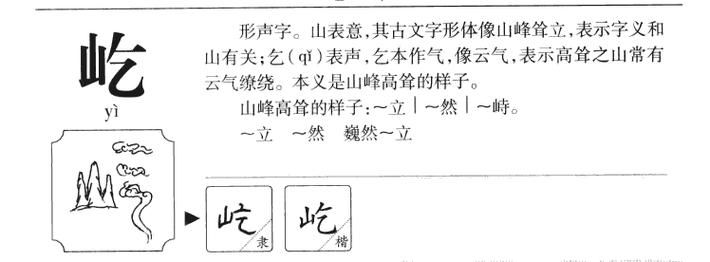 屹
yì
形声字。山表意,其古文字形体像山峰耸立,表示字义和
山有关;乞(qǐ)表声,乞本作气,像云气,表示高耸之山常有
云气缭绕。本义是山峰高耸的样子。
山峰高耸的样子:～立｜～然｜～峙。
～立 ～然 巍然～立
屹 隶
屹 楷